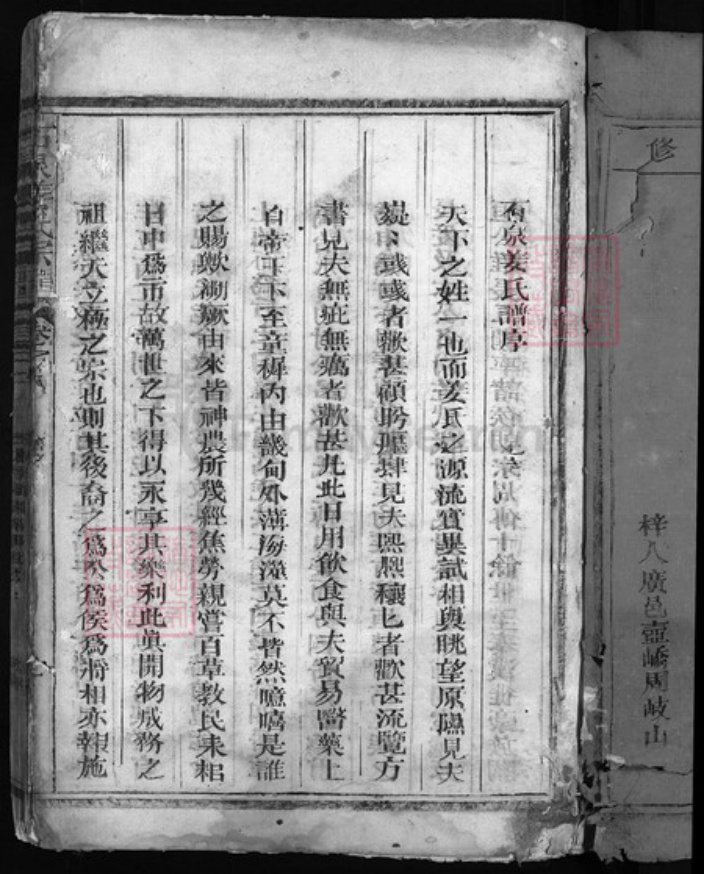 修
梓人廣邑壺嶠周岐山
石泉姜氏譜序
天下之姓一也而姜氏之源流實異試相與眺望原隰見夫
薿〻彧彧者歟甚顧盻廛肆見夫熙熙穰匕者歡甚流覽方
書見夫無疵無癘者歡甚凡此日用飲食與夫貿易醫藥上
自帝王下至童穉內由畿甸外薄海澨莫不皆然噫嘻是誰
之賜歟溯厥由來皆神農所幾經焦勞親嘗百草教民耒耜
日中爲市故萬世之下得以永享其樂利此眞開物成務之
祖繼天立極之宗也則其後裔之爲公爲侯爲將相亦報施
石泉姜氏宗譜
卷之